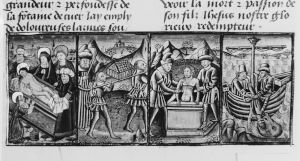 grandeur ⁊ perfondesse de
la fontaine de tuer lay emply
de doloureuses larmes son
veoir la mort ⁊ passion de
son filz Jhesus nostre glo
rieux redempteur.